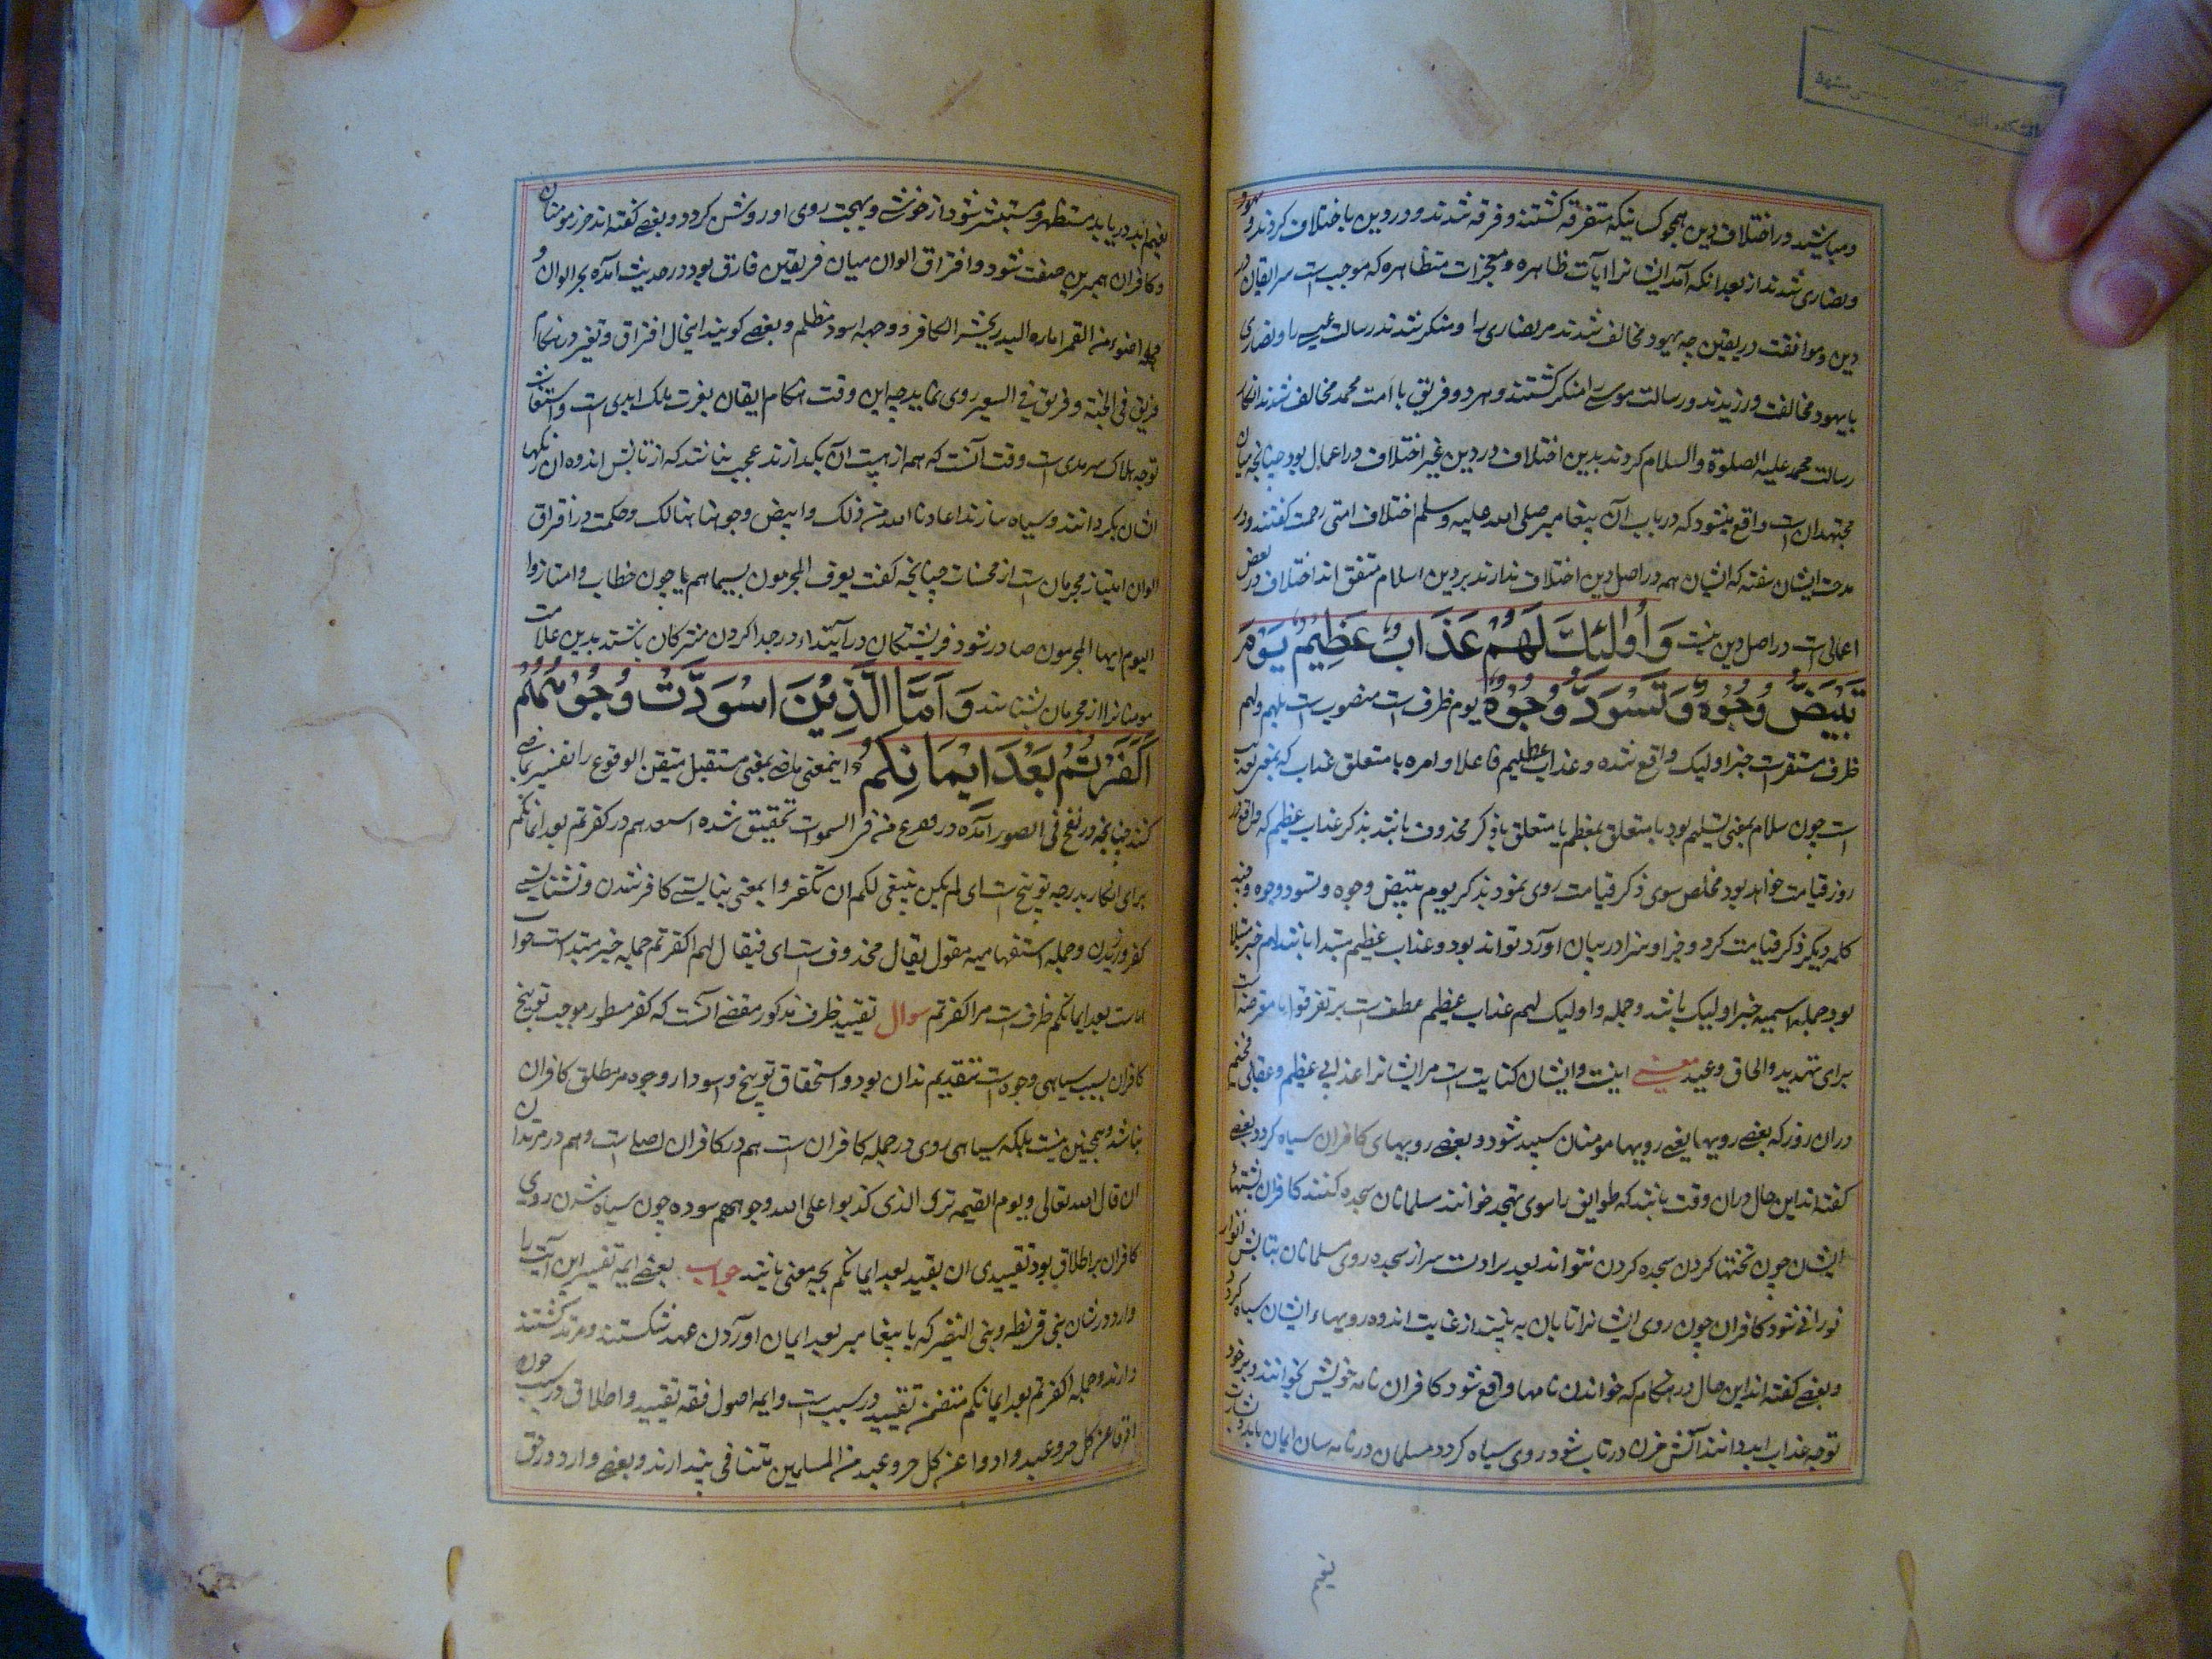 و مباشید در اختلاف دین همچو کسانیکه متفرقه کشتند و فرقه فرقه شدند و در دین باختلاف کردند و یهود
و نصاری شدند از بعد انکه آمد ایشانرا آیات ظاهره و معجزات متظاهره که موجب است مر ایقان در
دین و موافقت در یقین چه یهود مخالف شدند مر نصاری را و منکر شدند رسالت عیسی را و نصاری
با یهود مخالفت ورزیدند و رسالت موسی را منکر کشتند و هر دو فریق با امت محمد مخالف شدند انکار
رسالت محمد علیه الصلوة والسلام کردند بدین اختلاف در دین غیر اختلاف در اعمال بود چنانچه میان
مجتهدان است واقع میشود که در باب آن پیغامبر صلی الله علیه وسلم اختلاف امتی رحمة کفتند و در
مدحت ایشان سفته که ایشان همه در اصل دین اختلاف ندارند بر دین اسلام متفق اند اختلاف در بعض
اعمال است در اصل دین نیست وَاُولٰئِكَ لَهُمْ عَذَابٌ عَظِیْمٌ یَوْمَ
تَبْیَضُّ وُجُوْهٌ وَّتَسْوَدُّ وُجُوْهٌ یوم ظرف است منصوب است بلهم و لهم
ظرف مستقر است خبر اولیک واقع شده و عذاب عظیم فاعل او امره یا متعلق عذاب که بمعنی تعذیب
است چون سلام بمعنی تسلیم بود یا متعلق بعظیم یا متعلق باذکر محذوف باشد بذکر عذاب عظیم که واقع در
روز قیامت خواهد بود مخلص سوی ذکر قیامت روی نمود بذکر یوم تبیض وجوه و تسود وجوه و چند
کلمه دیکر ذکر قیامت کرد و جزا و سزا در بیان آورد تواند بود و عذاب عظیم مبتدا باشد لهم خبر مبتدا
بود جمله اسمیه خبر اولیک باشد و جمله و اولیک لهم عذاب عظیم عطف است بر تفرقوا یا معترضه است
برای تهدید و الحاق وعید معنی اینست و ایشان کنایت است مر ایشانرا عذابی عظیم و عقابی فخیم
دران روز که بعضی رویها یعنی رویها مومنان سپید شود و بعضی رویهای کافران سیاه کردد بعضی
کفته اند این حال دران وقت باشد که طوایق را سوی سجده خوانند مسلمانان سجده کنند کافران پشتهای
ایشان چون تختها کردن سجده کردن نتوانند بعد برداشت سر از سجده روی مسلمانان بتابش انوار
نورانی شود کافران چون روی ایشانرا تابان به بینند از غایت اندوه رویهاء ایشان سیاه کردد
و بعضی کفته اند این حال در هنکام که خواندن نامها واقع شود کافران نامه خویش بخوانند و بر خود
توجه عذاب ابد دانند آتش حزن در تاب شود روی سیاه کردد مسلمان در نامه سان ایمان یابد و بشارت
نعیم
نعیم ابد دریابد مستظهر و مستبشر شود از خوشی و بهجت روی او روشن کردد و بعضی کفته اند حزز مومنان
و کافران همبرین صفت شود و افتراق الوان میان فریقین فارق بود در حدیث آمده بحر الوان و
اضوء من القمر لیلة البدر یحشر الکافر و وجهه اسود مظلم و بعضی کویند اینحال افتراق و تغیر در هنکام
فریق فی الجنة و فریق فی السعیر روی نماید چه این وقت هنکام ایقان بعزت ملک ابدی است و استیقان
توجه هلاک سرمدی است وقت آنست که همه از هیبت آن بکدازند عجب نباشد که از تابش اندوه ان رنکها
ایشان بکردانند و سیاه سازند اعاذنا الله من ذلک و ابیض وجوهنا هنالک و حکمت در افتراق
الوان امتیاز مجرمان است از محسنات چنانچه کفت یعرف المجرمون بسیماهم یا چون خطاب وامتازوا
الیوم ایها المجرمون صادر شود فریشتکان در ابتداء در جدا کردن مشرکان باشند بدین علامت
مومنانرا از مجرمان بشناسند وَاَمَّا الَّذِیْنَ اسْوَدَّتْ وُجُوْهُهُمْ
اَكَفَرْتُمْ بَعْدَ اِیْمَانِكُمْ اینمعنی ماضی بمعنی مستقبل متیقن الوقوع را تفسیر بماضی
کنند چنانچه و نفخ فی الصور آمده و فصعق من فی السموات تحقیق شده استفهام در کفرتم بعد ایمانکم
برای انکار بدرجه توبیخ است ای لم یکن ینبغی لکم ان تکفروا بمعنی نبایستی کافر شدن و نشایستی
کفر ورزیدن و جمله استفهامیه مقول یقال محذوف است ای فیقال لهم اکفرتم جمله خبر مبتدا است جواب
اما است بعد ایمانکم ظرف است مر اکفرتم سوال تقیید ظرف مذکور مقتضی آنست که کفر مسطور موجب توبیخ
کافران بسبب سیاهی وجوه است بتقدیم ندان بود و استحقاق توبیخ و اسوداد وجوه مر مطلق کافران
نباشد و همچنین نیست بلکه سیاهی روی در جمله کافران است هم در کافران اصلی است و هم در مرتدان
ان قال الله تعالی و یوم القیمة تری الذین کذبوا علی الله وجوههم مسودة چون سیاه شدن روی
کافران بر اطلاق بود تقییدی ان بقید بعد ایمانکم بچه معنی باشد جواب بعضی ایمه تفسیر این آیت را
وارد در شان بنی قریظه و بنی النضیر که با پیغامبر بعد ایمان آوردن عهد شکستند و مرتد کشتند
دارند و جمله اکفرتم بعد ایمانکم متضمن تقیید در سبب است و ایمه اصول فقه تقیید و اطلاق در سبب چون
ادوا عن کل حر و عبد و ادوا عن کل حر و عبد من المسلمین متنافی نپندارند و بعضی وارد در حق